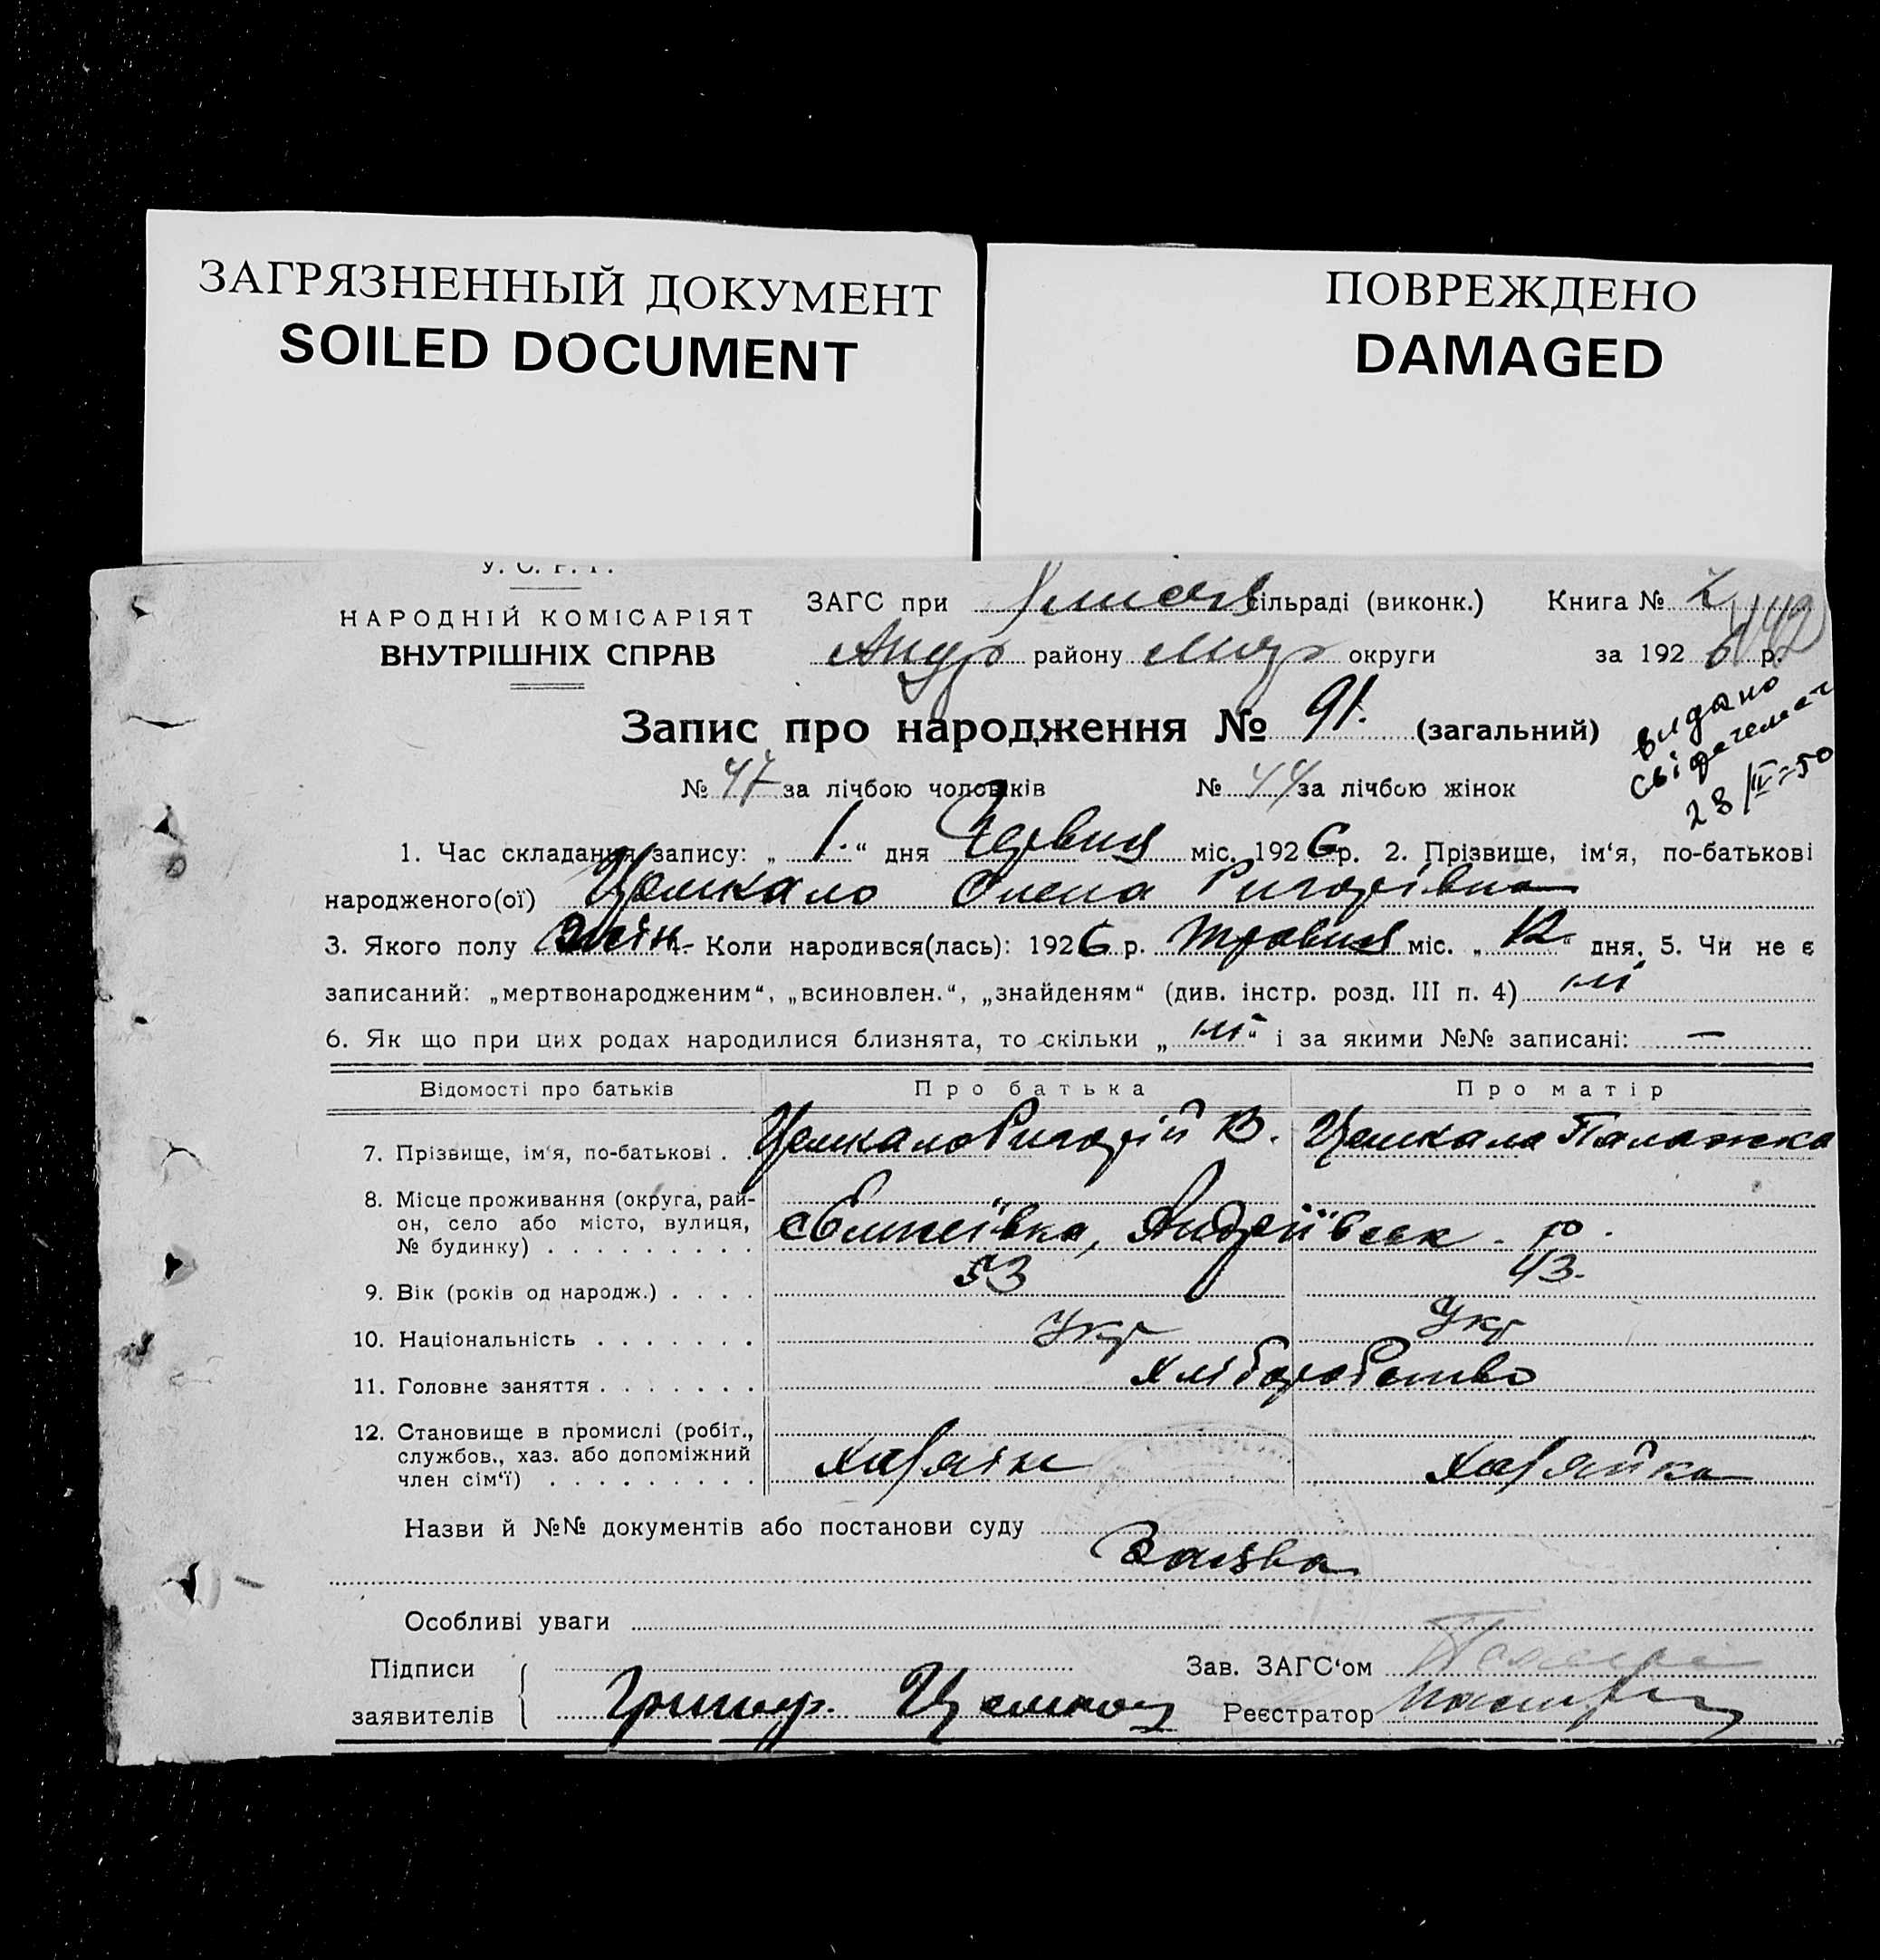 ЗАГРЯЗНЕННЫЙ ДОКУМЕНТ
SOILED DOCUMENT
ПОВРЕЖДЕНО
DAMAGED
НАРОДНІЙ КОМІСАРІЯТ
ВНУТРІШНІХ СПРАВ
ЗАГС при сільраді (виконк.) Книга №
Андр району округи за 192 6 р.
142
Запис про народження № 91. (загальний)
видано
28/IV-50
№ 47 за лічбою чоловіків № 44 за лічбою жінок
1. Час складання запису: „ 1. “ дня Червня міс. 1926 р. 2. Прізвище, ім‘я, по-батькові
народженого(ої) Цемкало Олена Ригорівна
3. Якого полу жін. 4. Коли народився(лась): 1926 р. травня міс. „ 12 “ дня. 5. Чи не є
записаний: „мертвонародженим“, „всиновлен.“, „знайденям“ (див. інстр. розд. III п. 4) ні
6. Як що при цих родах народилися близнята, то скільки „ ні “ і за якими №№ записані: —
Відомості про батьків Про батька Про матір
7. Прізвище, ім‘я, по-батькові . Цемкало Ригорій В. Цемкала Палажка
8. Місце проживання (округа, рай-
он, село або місто, вулиця,
№ будинку) . . . . . . . . . Андріївськ. р.
9. Вік (років од народж.) . . . . 53 43.
10. Національність . . . . . . . Укр Укр
11. Головне заняття . . . . . . . хліборобство
12. Становище в промислі (робіт.,
службов., хаз. або допоміжний
член сім‘ї) . . . . . . . . . хазяін хазяйка
Назви й №№ документів або постанови суду
Заява
Особливі уваги
Підписи Зав. ЗАГС‘ом
заявителів Григор. Реєстратор